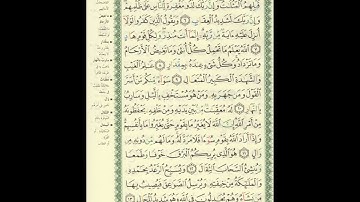 قَبْلِهِمُ الْمَثُلَٰتُ وَإِنَّ رَبَّكَ لَذُو مَغْفِرَةٍ لِّلنَّاسِ عَلَىٰ ظُلْمِهِمْ
وَإِنَّ رَبَّكَ لَشَدِيدُ الْعِقَابِ ٦ وَيَقُولُ الَّذِينَ كَفَرُوا لَوْلَا
أُنزِلَ عَلَيْهِ ءَايَةٌ مِّن رَّبِّهِ إِنَّمَا أَنتَ مُنذِرٌ وَلِكُلِّ قَوْمٍ هَادٍ
٧ اللَّهُ يَعْلَمُ مَا تَحْمِلُ كُلُّ أُنثَىٰ وَمَا تَغِيضُ الْأَرْحَامُ
وَمَا تَزْدَادُ وَكُلُّ شَيْءٍ عِندَهُ بِمِقْدَارٍ ٨ عَٰلِمُ الْغَيْبِ
وَالشَّهَٰدَةِ الْكَبِيرُ الْمُتَعَالِ ٩ سَوَاءٌ مِّنكُم مَّنْ أَسَرَّ
الْقَوْلَ وَمَن جَهَرَ بِهِ وَمَنْ هُوَ مُسْتَخْفٍ بِالَّيْلِ وَسَارِبٌ
بِالنَّهَارِ ١٠ لَهُ مُعَقِّبَٰتٌ مِّن بَيْنِ يَدَيْهِ وَمِنْ خَلْفِهِ يَحْفَظُونَهُ
مِنْ أَمْرِ اللَّهِ إِنَّ اللَّهَ لَا يُغَيِّرُ مَا بِقَوْمٍ حَتَّىٰ يُغَيِّرُوا مَا بِأَنفُسِهِمْ
وَإِذَا أَرَادَ اللَّهُ بِقَوْمٍ سُوءًا فَلَا مَرَدَّ لَهُ وَمَا لَهُم مِّن دُونِهِ مِن
وَالٍ ١١ هُوَ الَّذِي يُرِيكُمُ الْبَرْقَ خَوْفًا وَطَمَعًا
وَيُنشِئُ السَّحَابَ الثِّقَالَ ١٢ وَيُسَبِّحُ الرَّعْدُ بِحَمْدِهِ
وَالْمَلَٰئِكَةُ مِنْ خِيفَتِهِ وَيُرْسِلُ الصَّوَٰعِقَ فَيُصِيبُ بِهَا
مَن يَشَاءُ وَهُمْ يُجَٰدِلُونَ فِي اللَّهِ وَهُوَ شَدِيدُ الْمِحَالِ ١٣